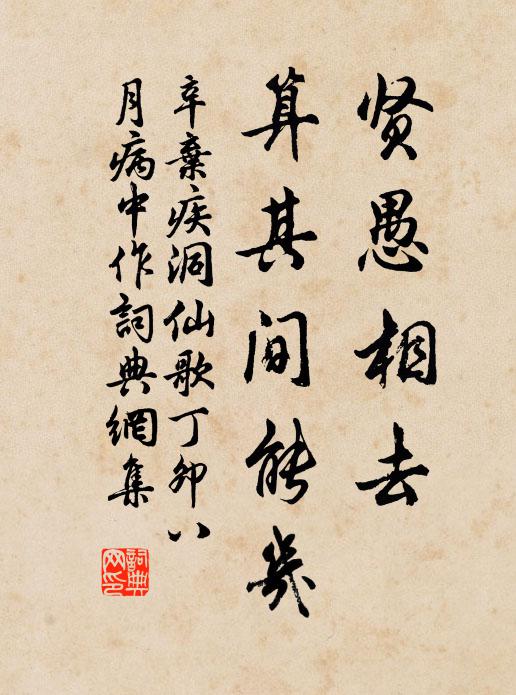 贤愚相去
算其间能幾
辛棄疾洞仙歌丁卯八
月病中作詞典網集
詞典
网印